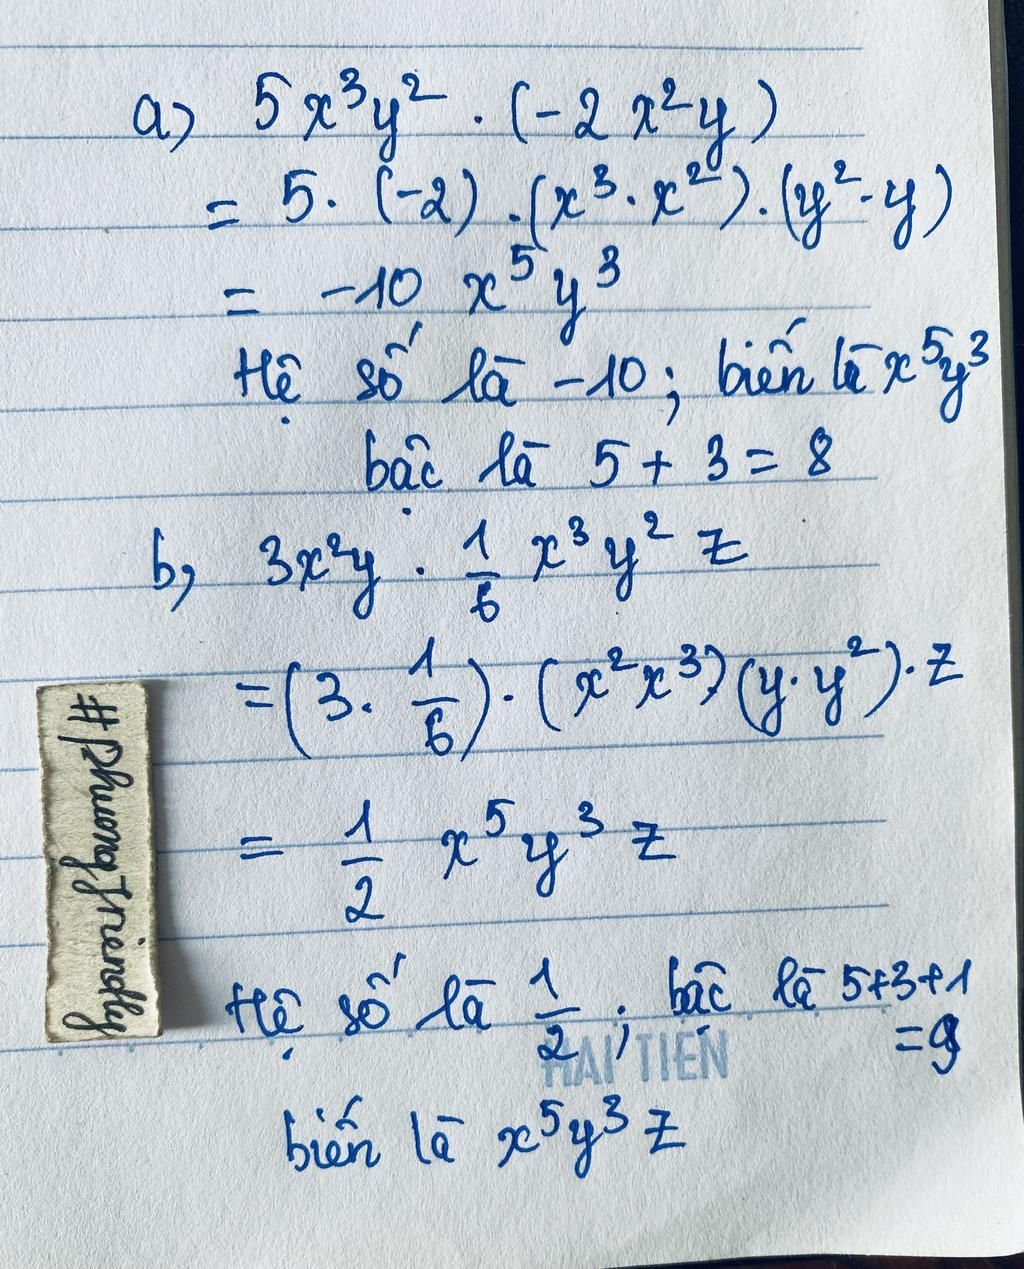 a) 5x³y² . (-2x²y)
= 5. (-2) . (x³.x²).(y².y)
= -10 x⁵y³
Hệ số là -10; biến là x⁵y³
bậc là 5 + 3 = 8
b) 3x²y . 1/6 x³y² z
= (3. 1/6). (x²x³)(y.y²).z
= 1/2 x⁵y³z
Hệ số là 1/2; bậc là 5+3+1
= 9
HẢI TIẾN
biến là x⁵y³z
#phuongfriendly